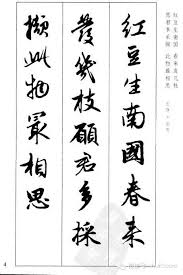 红豆生南国 春来发几枝
愿君多采撷 此物最相思
紅豆生南國春来
發幾枝願君多採
擷此物最相思
4